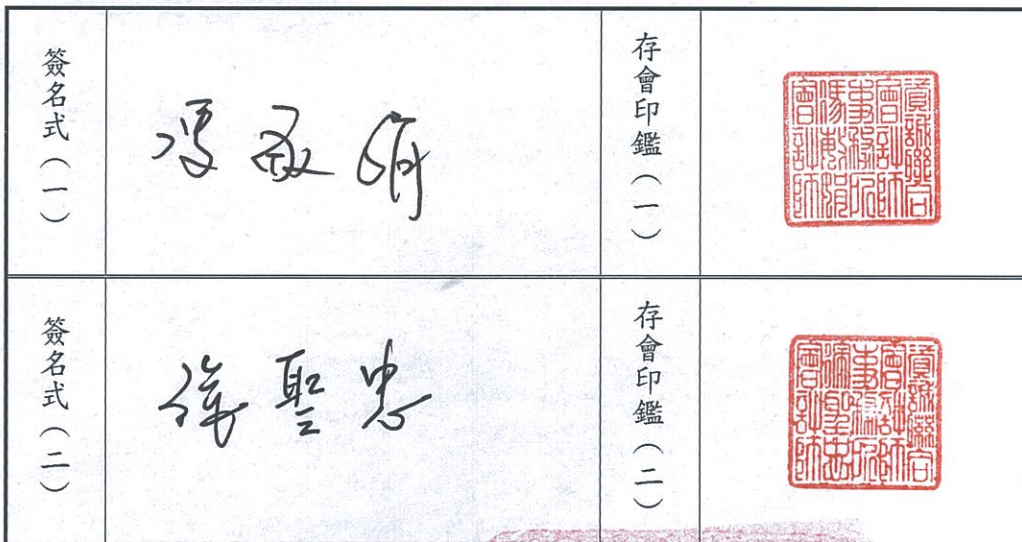 簽名式（一）
馮敏娟
存會印鑑（一）
資誠聯合
會計師
事務所
馮敏娟
會計師
簽名式（二）
徐聖忠
存會印鑑（二）
資誠聯合
會計師
事務所
徐聖忠
會計師